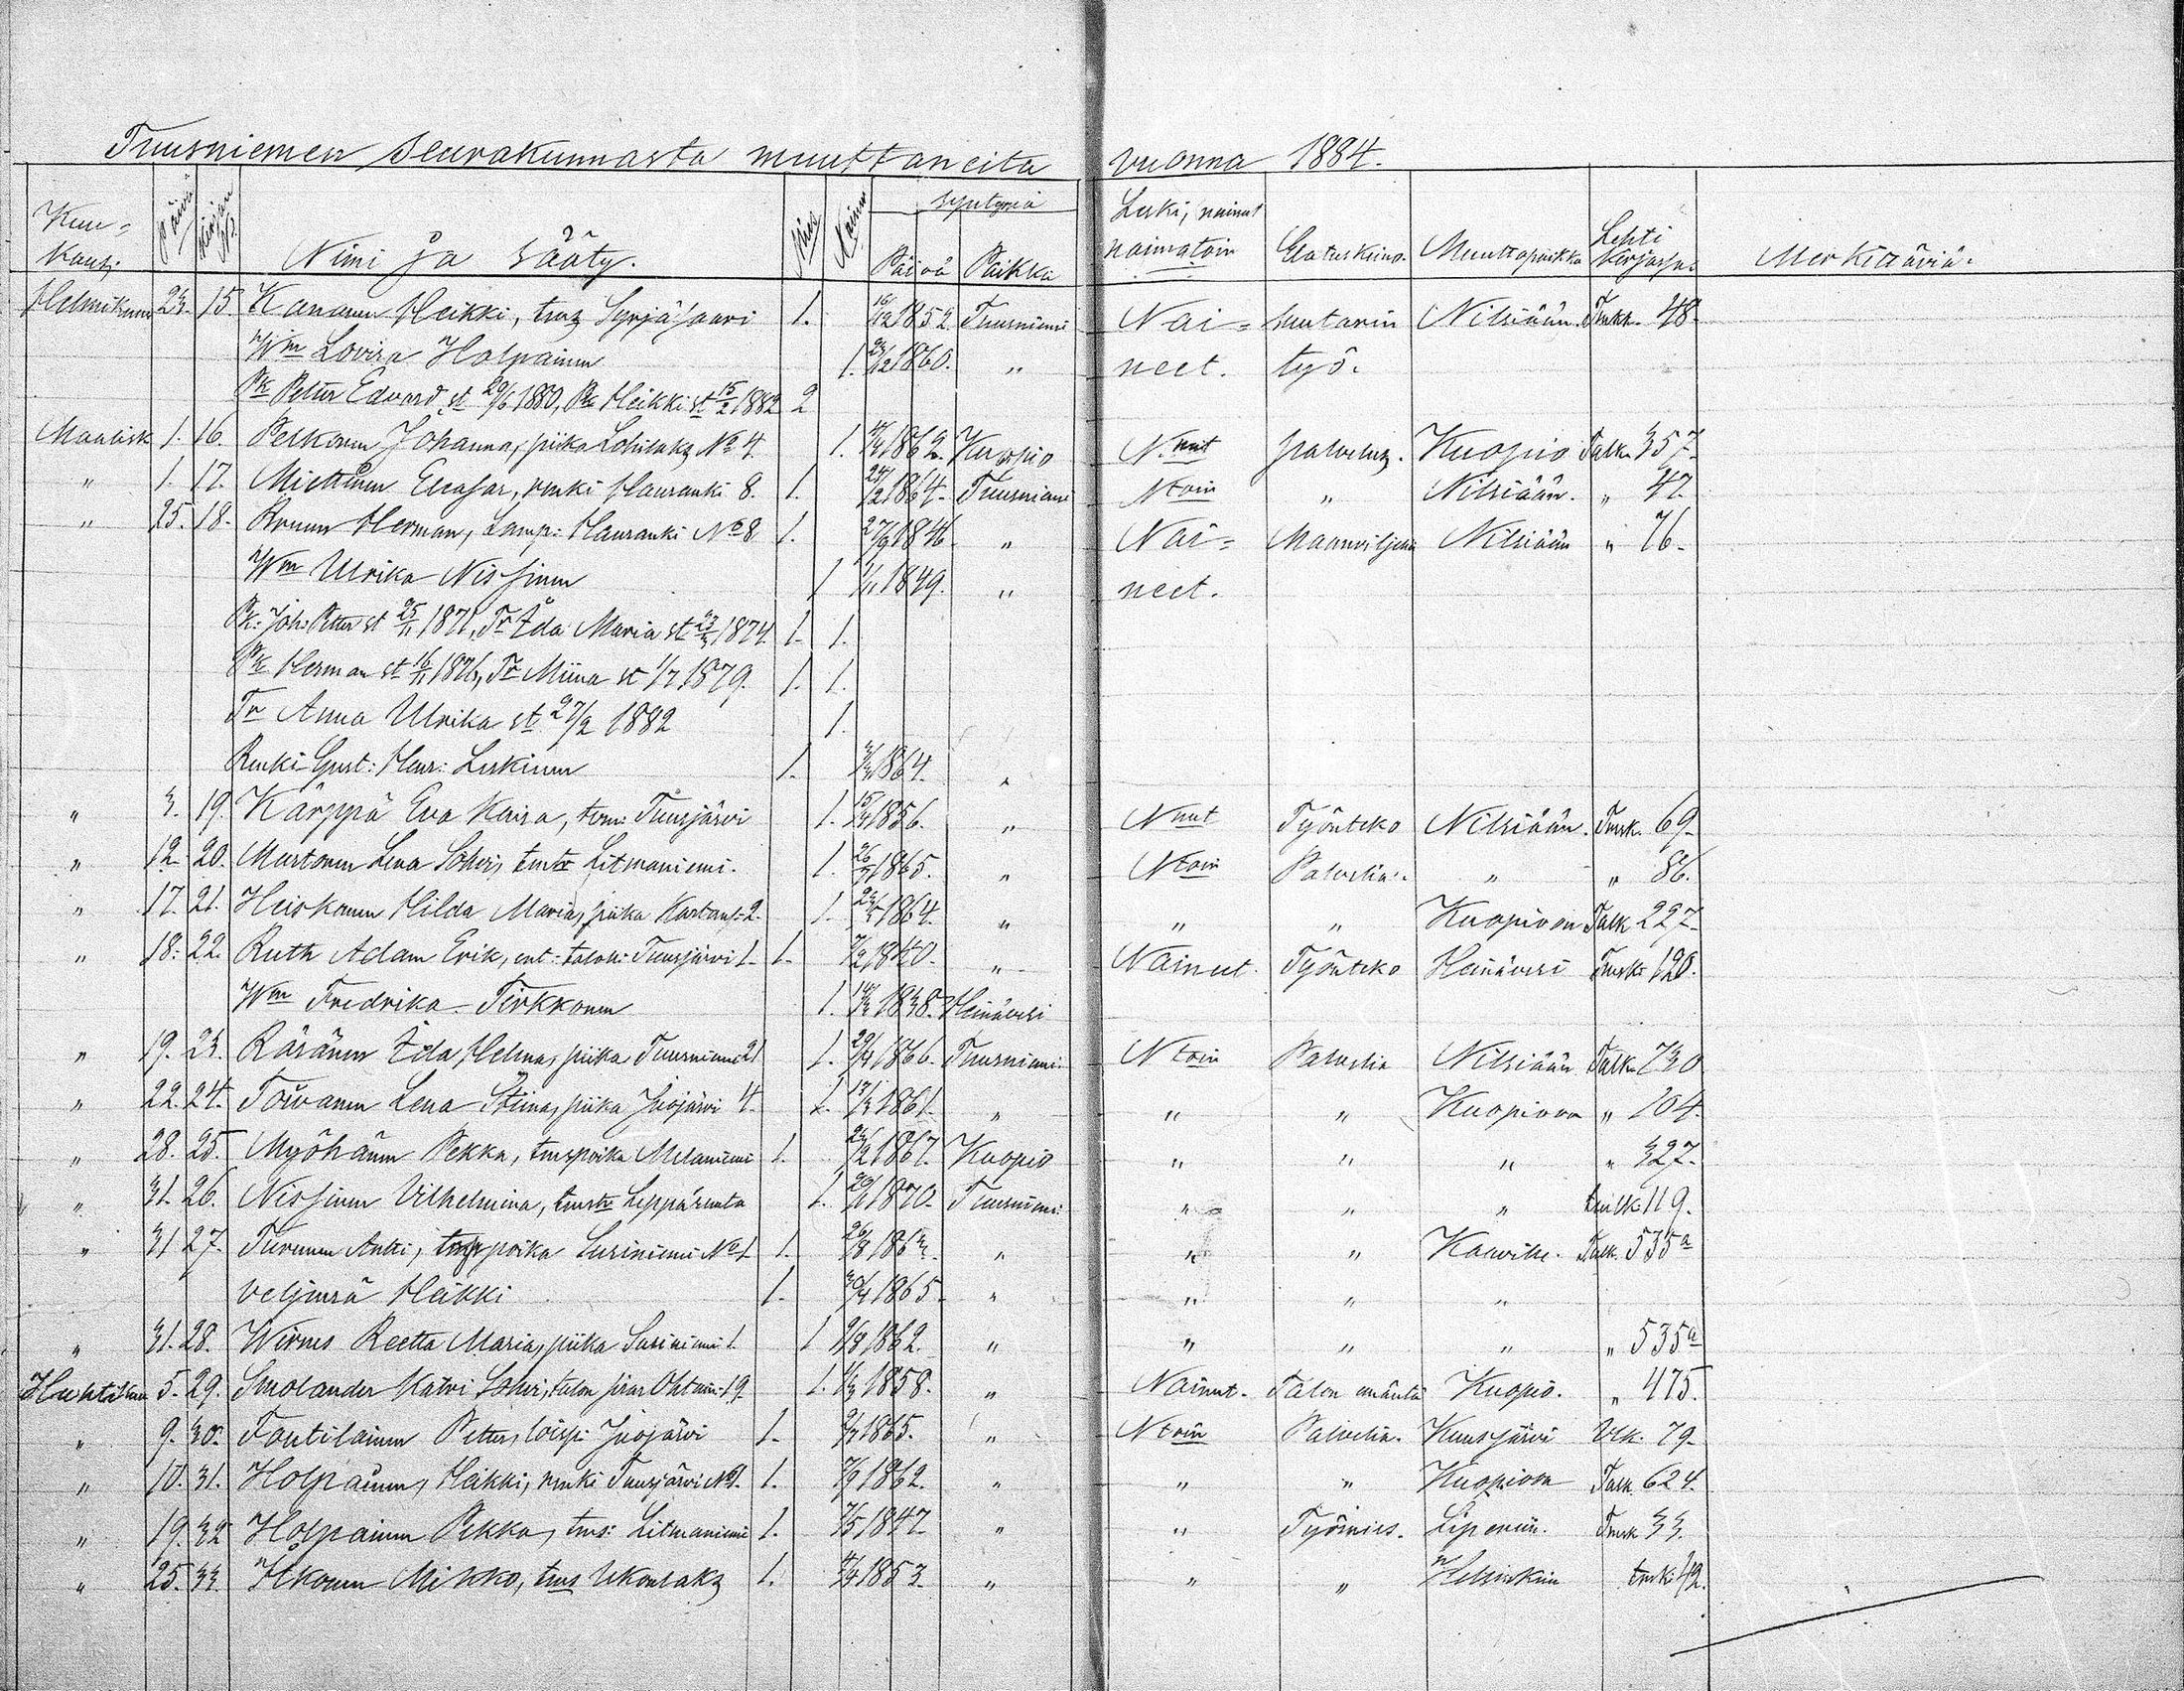 Tuusniemen seurakunnasta muuttaneita vuonna 1884.
Kuu-kausi. Päivä Kirjan No. Nimi ja sääty. Mies Nainen Syntynyt Päivä Paikka Leski, nainut naimatoin Elatuskeino. Muuttopaikka Lehti kirjassa. Merkittäviä.
Helmikuun 23. 15. Kananen Heikki, Syrjäsaari 1. 16/12 1852. Tuusniemi Nai- suutarin Nilsiään. 48.
Wm Lovisa Holpainen 1. 1860. " neet. työ.
Pk Petter Edvard st 29/6 1880, Pk Heikki st 15/2 1882 2
Maalisk 1. 16. Pekonen Johanna, piika No 4. 1. 1862. Kuopio N.nut palvelus. Kuopio Talk. 357.
" 1. 17. Miettinen Eleasar, renki Hauranki 8. 1. 24/12 1864. Tuusniemi Ntoin " Nilsiään. " 47.
" 25. 18. Bruun Herman, Lamp: Hauranki No 8 1. 27/9 1846 " Nai- Maanviljeliä Nilsiään " 76.
Wm Ulrika Nissinen 1 1/11 1849. " neet.
Pk: Joh: Petter st 25/11 1871, Tr Ida Maria st 23/3 1874 1. 1.
Pk Herman st 16/11 1876, Tr Miina st 1/7 1879. 1. 1.
Tr Anna Ulrika st 27/2 1882 1.
Renki Gust: Henr: Leskinen 1. 1864. "
" 3. 19. Kärppä Eva Kaisa, Tuusjärvi 1. 1856. " Nnut Työnteko Nilsiään. 69.
" 12. 20. Mustonen Lena Sohvi, Litmaniemi. 1. 26/7 1865. " Ntoin Palvelia. " " 86.
" 17. 21. Heiskanen Hilda Maria, piika 2. 1. 1864. " " " Kuopioon Talk 227.
" 18. 22. Ruth Adam Erik, ent: talol: Tuusjärvi 1. 1. 1840. " Nainut. Työnteko Heinävesi 120.
Wm Fredrika Tirkkonen 1. 1838. Heinävesi
" 19. 23. Räsänen Ida Helena, piika Tuusniemi 21 1. 29/4 1866. Tuusniemi. Ntoin Palvelia Nilsiään Talk 730
" 22. 24. Toivanen Lena Stiina, piika Juojärvi 4. 1. 17/3 1861. " " " Kuopioon " 204.
" 28. 25. Myöhänen Pekka, Melaniemi 1. 1867. Kuopio " " " " 327.
" 31. 26. Nissinen Vilhelmina, Leppäranta 1. 1870. Tuusniemi " " " 119.
" 31 27. Turunen Antti, poika Susiniemi No 1 1. 26/8 1863. " " " Kaaville. Talk. 535a
veljensä Heikki 1. 30/4 1865. " " " "
" 31. 28. Wirnes Reetta Maria, piika Susiniemi 1. 1 1862. " " " " " 535a
Huhtikuu 5. 29. Smolander Katri Sohvi, talon 19. 1. 1858. " Nainut. Talon emäntä Kuopio. " 475.
" 9. 30. Tontilainen Petter, loisp: Juojärvi 1. 1865. " Ntoin Palvelia. Kuusjärvi 79.
" 10. 31. Holpainen, Heikki, renki Tuusjärvi No 1. 1. 7/9 1862. " " " Kuopioon Talk 624.
" 19. 32 Holpainen Pekka, Litmaniemi 1. 7/5 1847. " " Työmies. Liperiin. 33.
" 25. 33. Ikonen Mikko, Ukonlaks 1. 4/4 1853. " " " Helsinkiin 42.